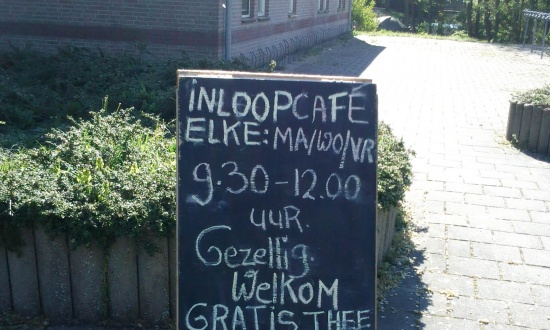 INLOOPCAFÉ
ELKE: MA/WO/VR
9.30-12.00
UUR.
Gezellig.
WELKOM
GRATIS THEE